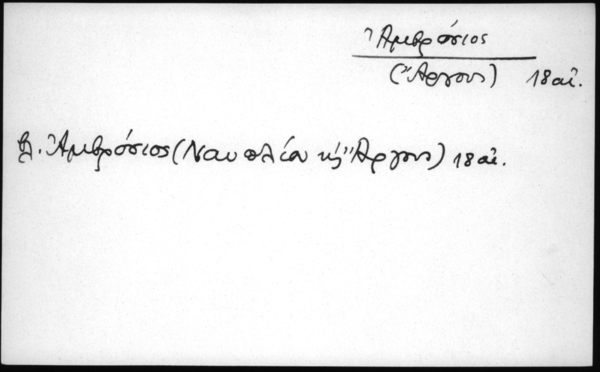 Ἀμβρόσιος
(Ἄργους) 18 αἰ.
βλ. Ἀμβρόσιος (Ναυπλίου κ Ἄργους) 18 αἰ.